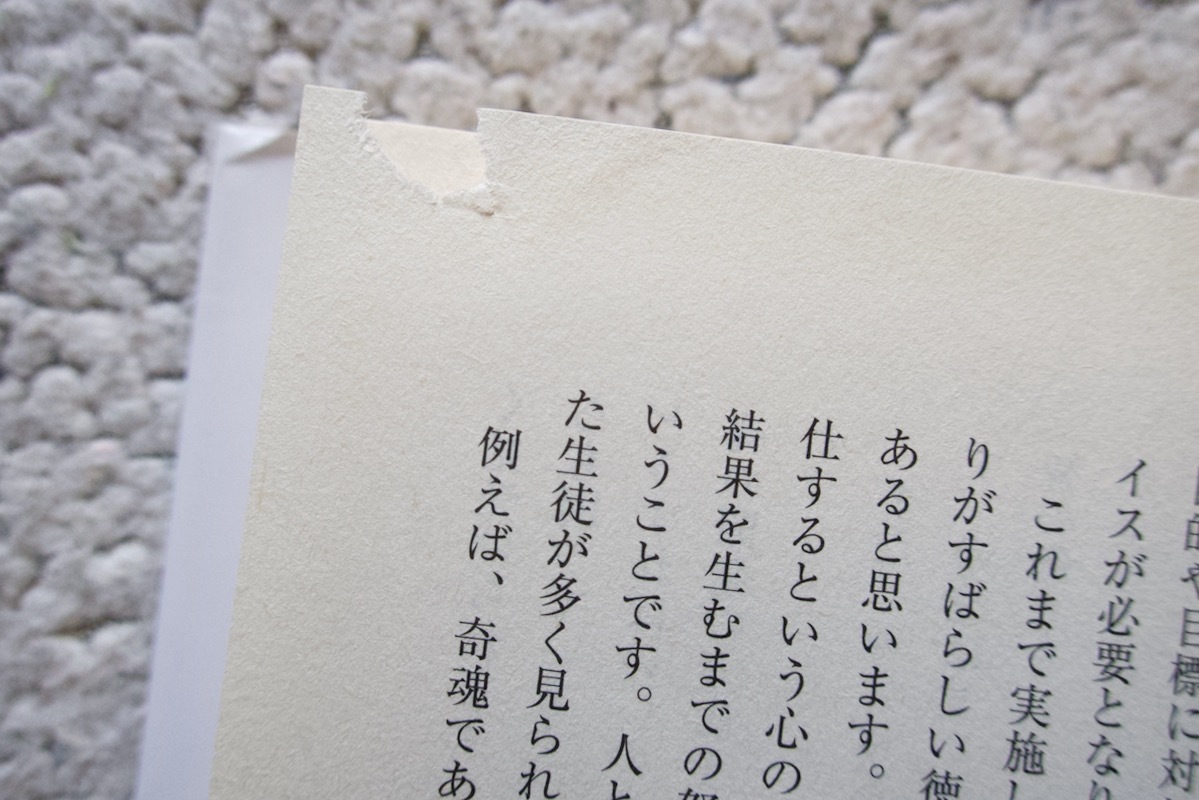 由や目標に対
イスが必要となり
これまで実施し
りがすばらしい徳
あると思います。
仕するという心の
結果を生むまでの努
いうことです。人と
た生徒が多く見られ
例えば、奇魂であ